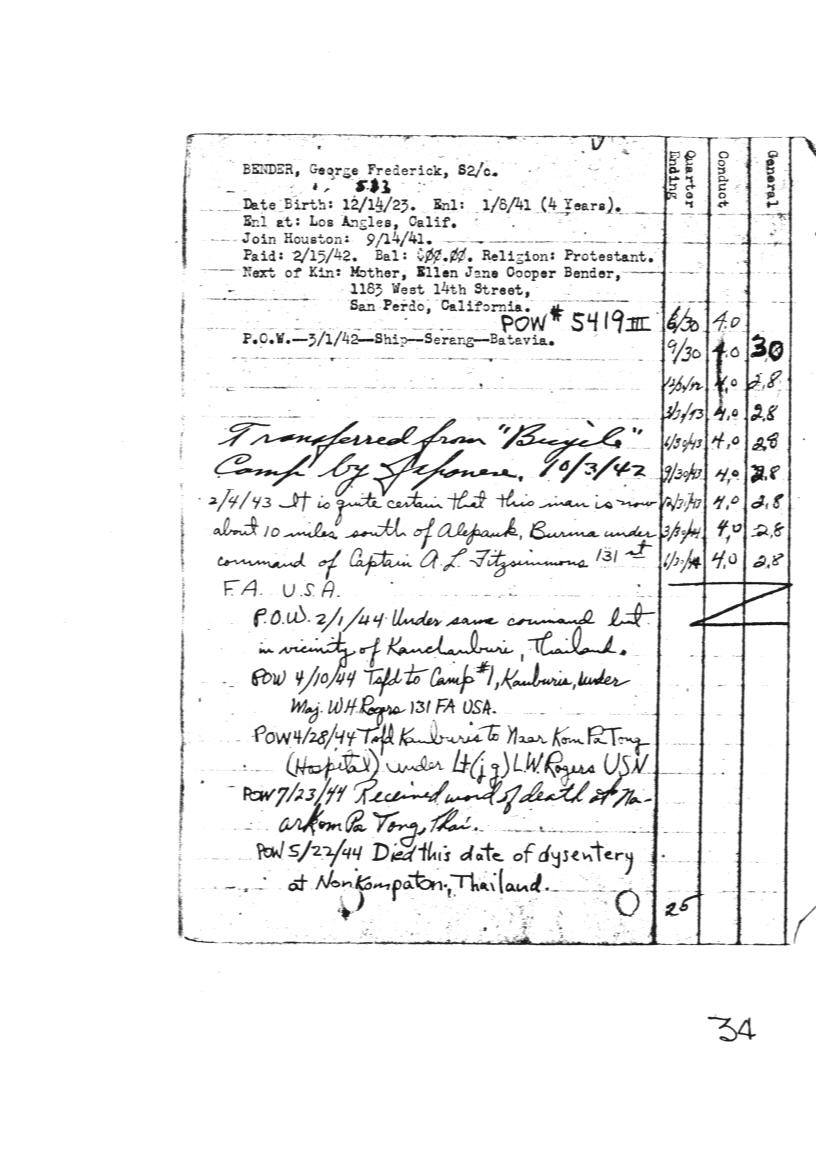 BENDER, George Frederick, S2/c.
Date Birth: 12/14/23. Enl: 1/8/41 (4 Years).
Enl at: Los Angles, Calif.
Join Houston: 9/14/41.
Paid: 2/15/42. Bal: Religion: Protestant.
Next of Kin: Mother, Ellen Jane Cooper Bender,
1183 West 14th Street,
San Perdo, California.
POW # 5419 III
P.O.W.--3/1/42--Ship--Serang--Batavia.
Transferred from "Bicycle"
Camp by Japanese, 10/3/42
2/4/43 It is quite certain that this man is now
about 10 miles south of Alepauk, Burma under
command of Captain A. L. Fitzsimmons 131 st
F.A. U.S.A.
P.O.W. 2/1/44 Under same command but
in vicinity of Kanchanburi, Thailand.
POW 4/10/44 Tsfd to Camp #1, Kanburis, under
Maj. W H Rogers 131 FA USA.
POW 4/28/44 Tsfd Kanburis to Near Kom Pa Tong
(Hospital) under Lt(jg) L.W. Rogers USN
POW 7/23/44 Received word of death at Na-
arkom Pa Tong, Thai.
POW 5/22/44 Died this date of dysentery
at Nonkompaton, Thailand.
Quarter Ending Conduct General
6/30 4.0
9/30 4.0 3.0
12/31/42 4.0 2.8
3/31/43 4.0 2.8
6/30/43 4.0 2.8
9/30/43 4.0 2.8
12/31/43 4.0 2.8
3/31/44 4.0 2.8
6/30/44 4.0 2.8
25
34